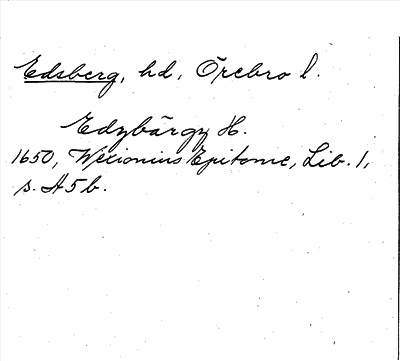 Edsberg, hd, Örebro l.
Edzbärgz H.
1650, Wexionius Epitome, Lib. 1,
s. A5b.